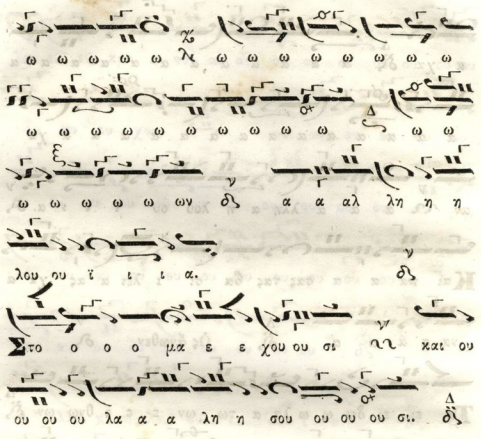 ω ω ω ω ω ω ω ω ω ω ω ω ω
ω ω ω ω ω ω ω ω ω ω Δ ω ω
ω ω ω ω ω ων ν α α αλ λη η η
λου ου ϊ ι ι α. ν
Στο ο ο ο μα ε ε χου ου σι και ου
ου ου ου λα α α λη η σου ου ου ου σι. Δ